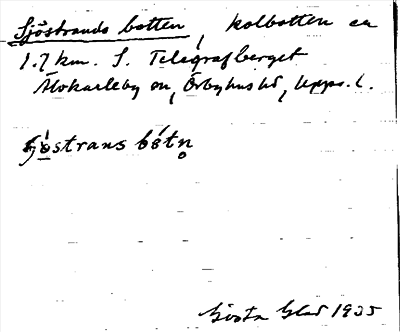 Sjöstrands botten, kolbotten ca
1.7 km. S. Telegrafberget
Älvkarleby sn, Örbyhus hd, Upps. l.
sjöstrans bótn̥
Gösta Glad 1935